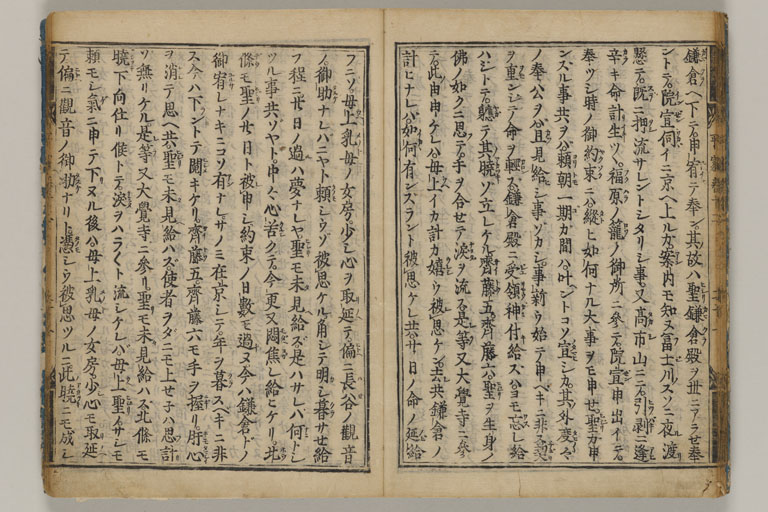 鎌倉ヘ下テ申宥テ奉ン其故ハ聖鎌倉殿ヲ世ニアラセ奉
ントテ院宣伺イニ京ヘ上ルガ案内モ知ヌ冨士川スソニ夜渡
懸テ既ニ押流サレントシタリシ事又高市山ニテ引剥ニ逢
辛キ命計生ツヽ福原ノ籠ノ御所ニ参テ院宣申出イテ
奉ツシ時ノ御約束ニハ縦ヒ如何ナル大事ヲモ申セ聖ガ申
ンズル事共ヲハ頼朝一期ガ間ハ叶ントコソ宣シカ其外度々
ノ奉公ヲハ且見給シ事ゾカシ事新ウ始テ申ベキニ非ス契
ヲ重ンジテ命ヲ軽ス鎌倉殿ニ受領神付給スハヨモ忘レ給
ハジトテ聴テ其暁ソ立レケル齊藤五齊藤六聖ヲ生身ノ
佛ノ如クニ思テ手ヲ合セテ涙ヲ流ス是等又大覺寺ニ参
テ此由申ケレハ母上イカ計カ嬉ウ被思ケン去共鎌倉ノ
計ヒナレバ如何有ンズラント被思ケレ共廿日ノ命ノ延給
フニソ母上乳母ノ女房少シ心ヲ取延テ偏ニ長谷ノ觀音
ノ御助ナレバニヤト頼シウソ被思ケル角シテ明シ暮サセ給
フ程ニ廿日ノ過ハ夢ナレヤ聖モ未見給ズ是ハサレバ何トシ
ツル事共ゾヤト中々心苦クテ今更又悶焦レ給ヒケリ北
條モ聖ノ廿日ト被申シ約束ノ日數モ過ヌ今ハ鎌倉ドノ
御宥レナキニコソ有ナレサノミ在京シテ年ヲ暮スベキニ非
ス今ハ下ントテ鬪キケリ齊藤五齊藤六モ手ヲ握リ肝心
ヲ消テ思ヘ共聖モ未見給ハズ使者ヲダニモ上セ子ハ思計
ソ無リケル是等又大覺寺ニ参リ聖モ未見給ハズ北條モ
暁下向仕リ候トテ涙ヲハラ〳〵ト流シケレバ母上聖ノサシモ
頼モシ氣ニ申テ下ヌル後ハ母上乳母ノ女房少心モ取延
テ偏ニ觀音ノ御助ナリト憑シウ被思ツルニ此暁ニモ成シ